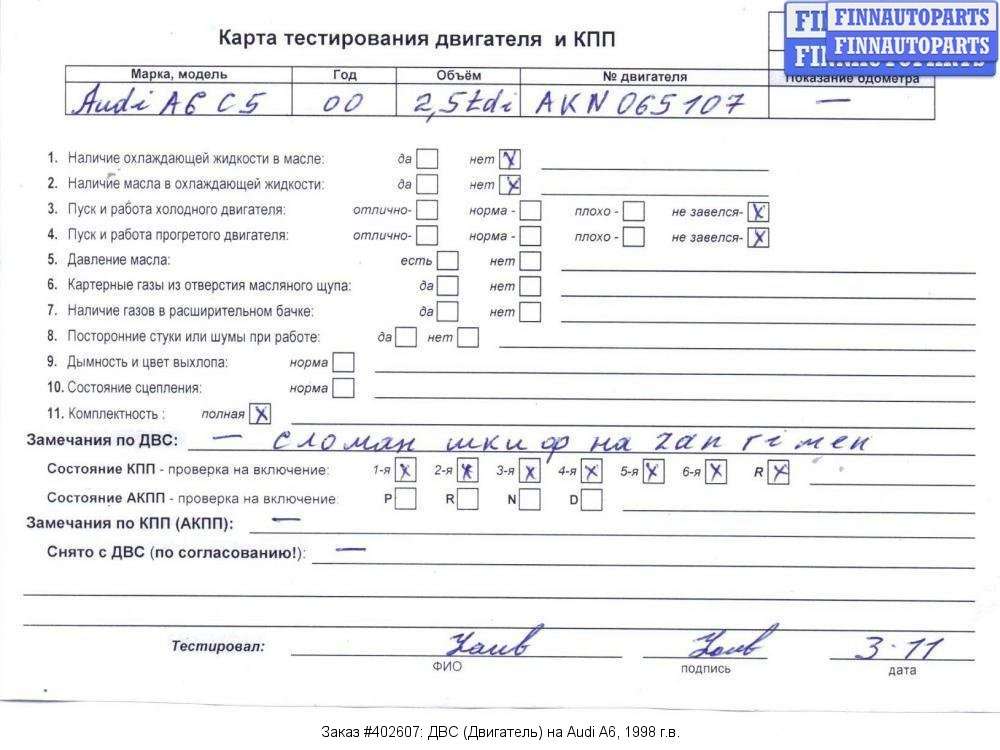 FINNAUTOPARTS
FINNAUTOPARTS
Карта тестирования двигателя и КПП
Марка, модель Год Объём № двигателя Показание одометра
Audi A6 C5 00 2,5tdi AKN 065107 —
1. Наличие охлаждающей жидкости в масле: да нет X
2. Наличие масла в охлаждающей жидкости: да нет X
3. Пуск и работа холодного двигателя: отлично- норма - плохо - не завелся- X
4. Пуск и работа прогретого двигателя: отлично- норма - плохо - не завелся- X
5. Давление масла: есть нет
6. Картерные газы из отверстия масляного щупа: да нет
7. Наличие газов в расширительном бачке: да нет
8. Посторонние стуки или шумы при работе: да нет
9. Дымность и цвет выхлопа: норма
10. Состояние сцепления: норма
11. Комплектность : полная X
Замечания по ДВС: — сломан шкиф на
Состояние КПП - проверка на включение: 1-я X 2-я X 3-я X 4-я X 5-я X 6-я X R X
Состояние АКПП - проверка на включение: P R N D
Замечания по КПП (АКПП): —
Снято с ДВС (по согласованию!): —
Тестировал: 3-11
ФИО подпись дата
Заказ #402607: ДВС (Двигатель) на Audi A6, 1998 г.в.